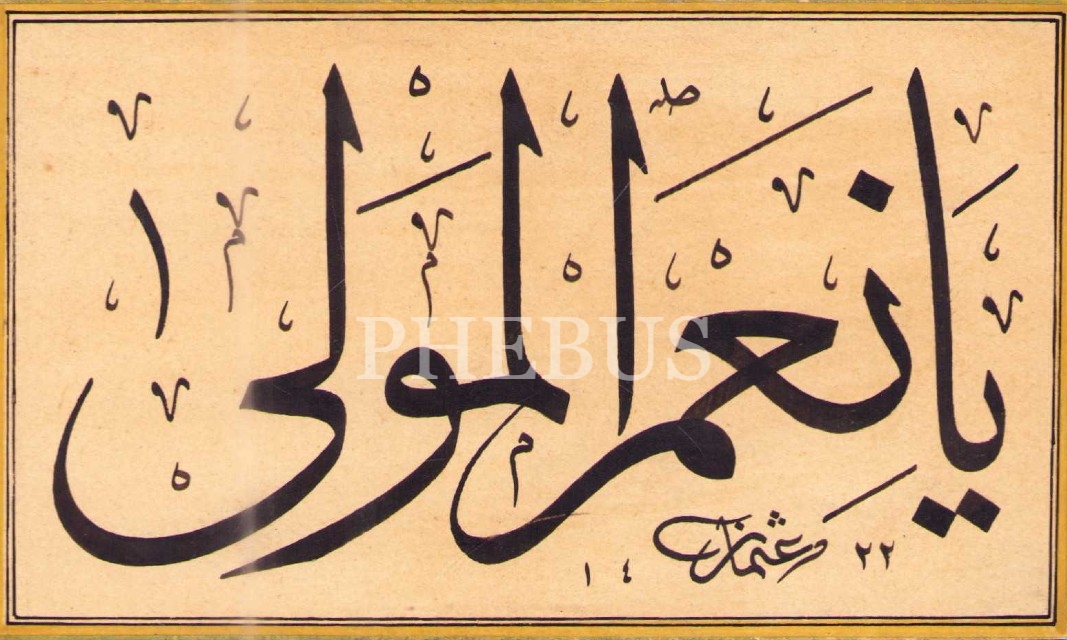 يَا نِعْمَ الْمَوْلٰى
PHEBUS
عثمان
١٤٢٢